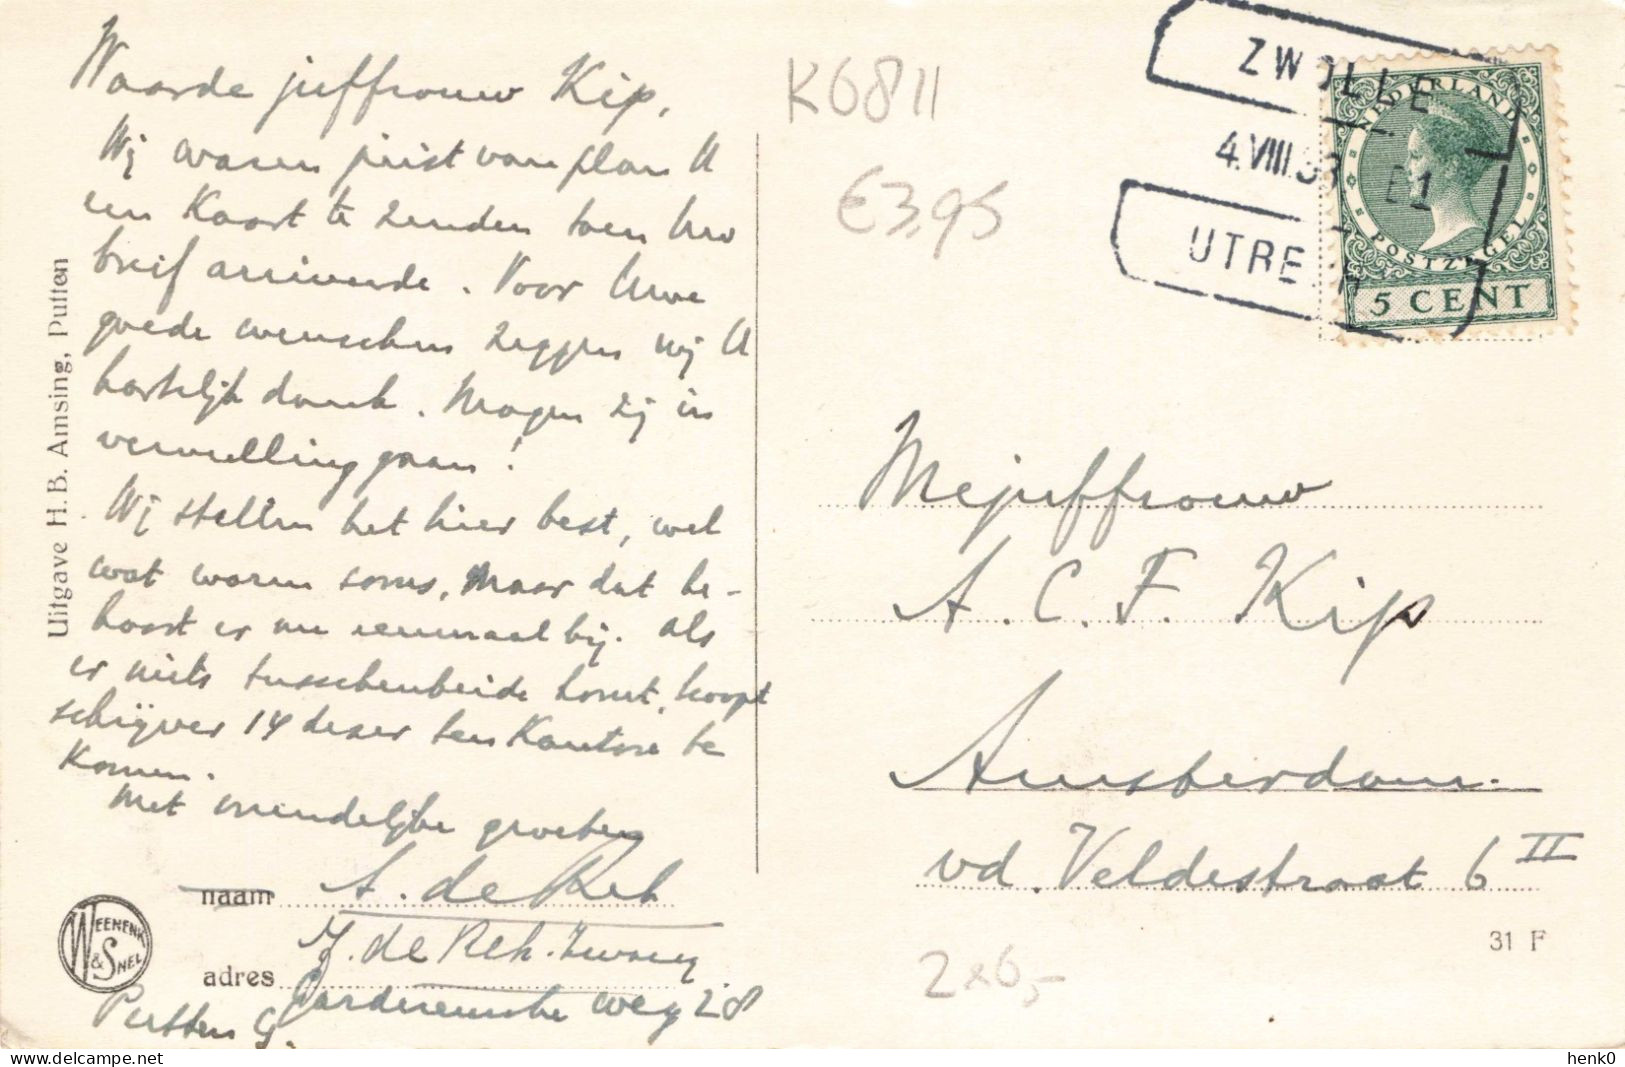 Waarde juffrouw Kip,
Wij waren juist van plan U
een Kaart te zenden toen Uw
brief arriveerde. Voor Uwe
goede wenschen zeggen wij U
hartelijk dank. Mogen zij in
vervulling gaan!
Wij stellen het hier best, wel
wat warm soms, maar dat be-
hoort er nu eenmaal bij. Als
er niets tusschenbeide komt, hoopt
schrijver 14 dezer ten Kantore te
Komen.
Met vriendelijke groeten
naam A. de Reh
J. de Reh.
adres weg 28
Putten G.
WEENENK & SNEL
Uitgave H.B. Amsing, Putten
K6811
€3,95
ZWOLLE
4.VIII.3 E1
UTRE
NEDERLAND
POSTZEGEL
5 CENT
Mejuffrouw
A. C. F. Kip
Amsterdam.
vd. Veldestraat 6 II
31 F
2x6,-
henk0